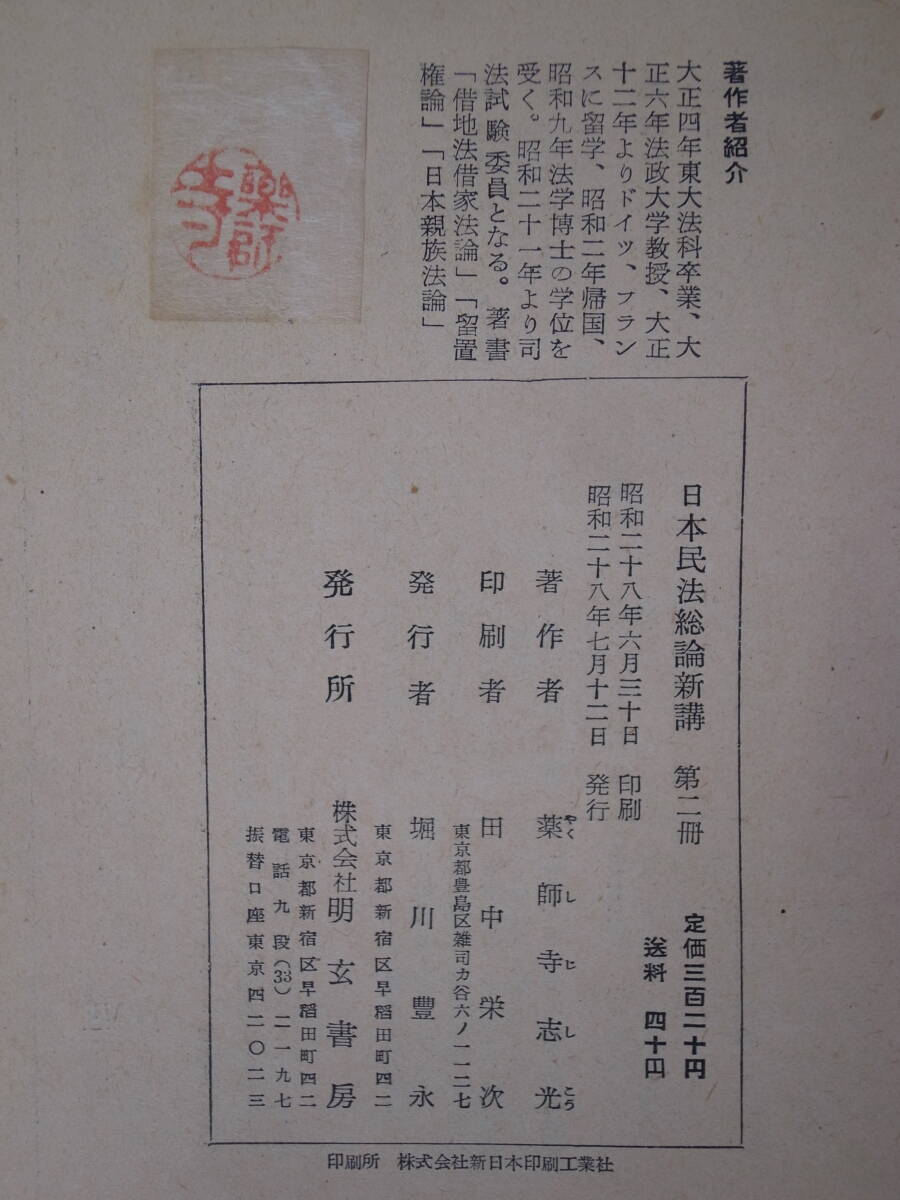 著作者紹介
大正四年東大法科卒業、大
正六年法政大学教授、大正
十二年よりドイツ、フラン
スに留学、昭和二年帰国、
昭和九年法学博士の学位を
受く。昭和二十一年より司
法試験委員となる。著書
「借地法借家法論」「留置
権論」「日本親族法論」
薬師寺
日本民法総論新講 第二冊 定価三百二十円
送料 四十円
昭和二十八年六月三十日 印刷
昭和二十八年七月十二日 発行
著作者 薬師寺志光
やくしじしこう
印刷者 田中栄次
東京都豊島区雑司カ谷六ノ一一二七
発行者 堀川豊永
東京都新宿区早稲田町四二
発行所 株式会社明玄書房
東京都新宿区早稲田町四二
電話九段(33)二一九七
振替口座東京四二〇二三
印刷所 株式会社新日本印刷工業社